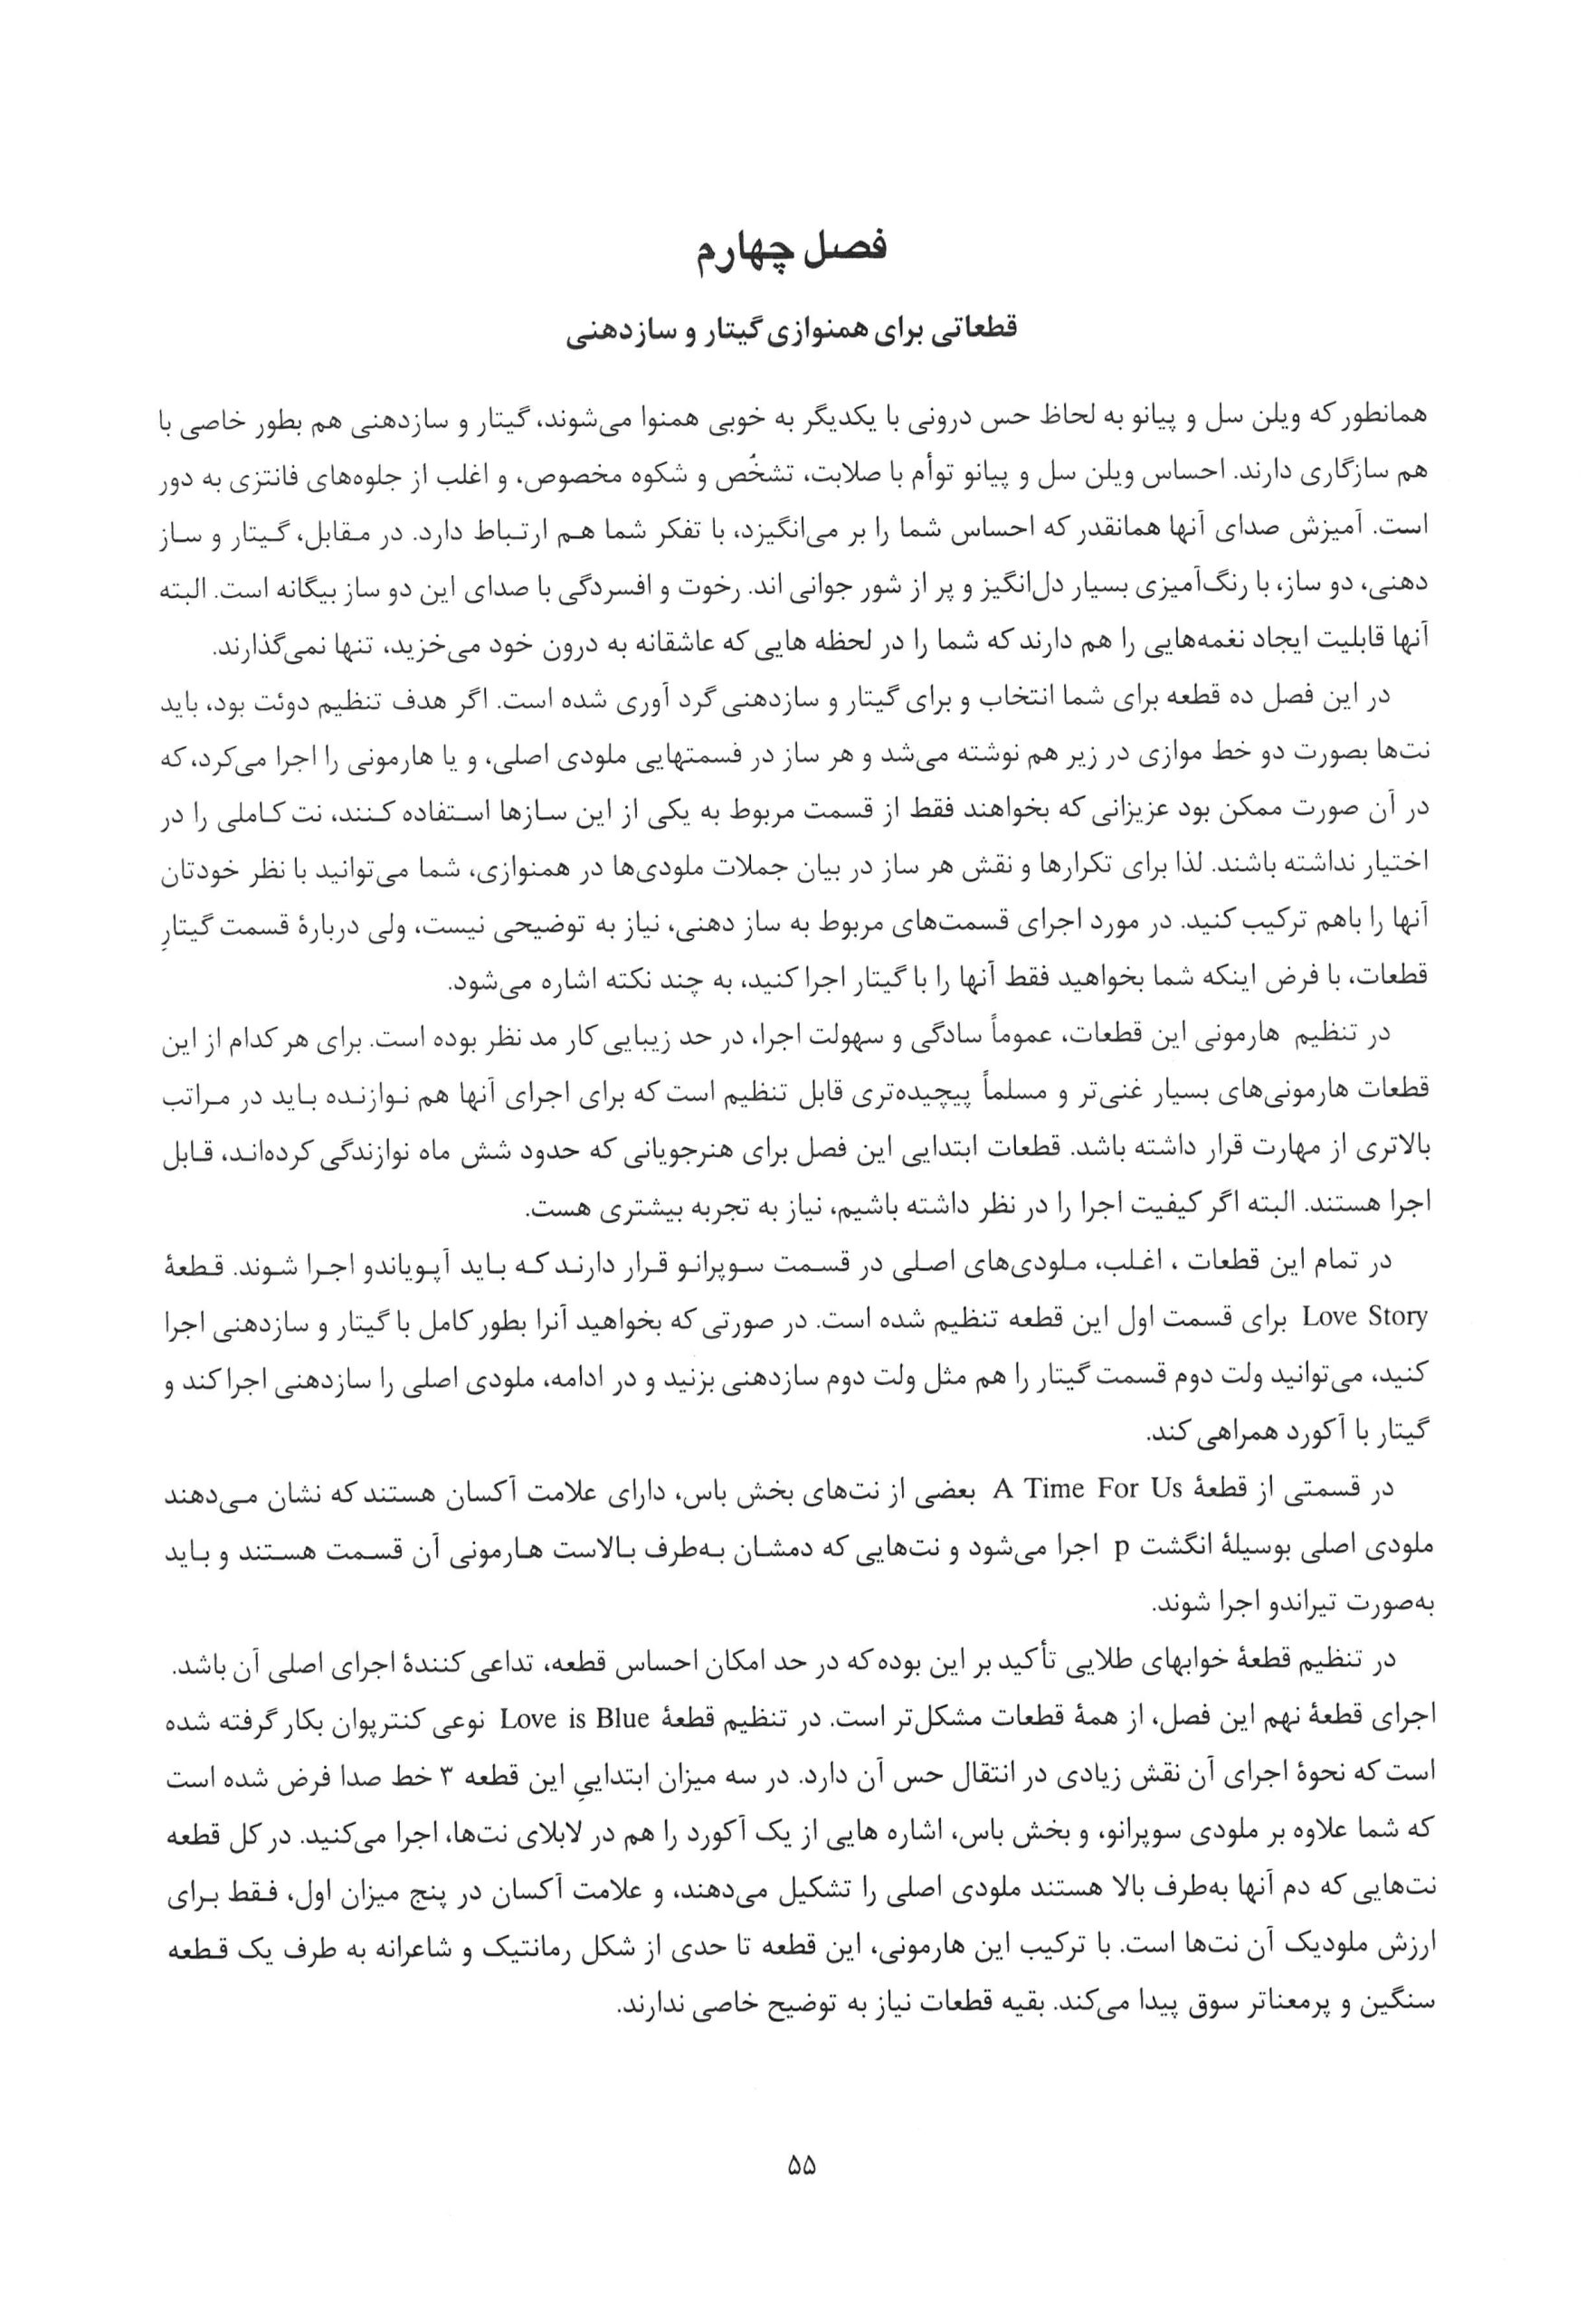 فصل چهارم
قطعاتی برای همنوازی گیتار و سازدهنی
همانطور که ویلن سل و پیانو به لحاظ حس درونی با یکدیگر به خوبی همنوا می‌شوند، گیتار و سازدهنی هم بطور خاصی با
هم سازگاری دارند. احساس ویلن سل و پیانو توأم با صلابت، تشخّص و شکوه مخصوص، و اغلب از جلوه‌های فانتزی به دور
است. آمیزش صدای آنها همانقدر که احساس شما را بر می‌انگیزد، با تفکر شما هم ارتباط دارد. در مقابل، گیتار و ساز
دهنی، دو ساز، با رنگ‌آمیزی بسیار دل‌انگیز و پر از شور جوانی اند. رخوت و افسردگی با صدای این دو ساز بیگانه است. البته
آنها قابلیت ایجاد نغمه‌هایی را هم دارند که شما را در لحظه هایی که عاشقانه به درون خود می‌خزید، تنها نمی‌گذارند.
در این فصل ده قطعه برای شما انتخاب و برای گیتار و سازدهنی گرد آوری شده است. اگر هدف تنظیم دوئت بود، باید
نت‌ها بصورت دو خط موازی در زیر هم نوشته می‌شد و هر ساز در قسمتهایی ملودی اصلی، و یا هارمونی را اجرا می‌کرد، که
در آن صورت ممکن بود عزیزانی که بخواهند فقط از قسمت مربوط به یکی از این سازها استفاده کنند، نت کاملی را در
اختیار نداشته باشند. لذا برای تکرارها و نقش هر ساز در بیان جملات ملودی‌ها در همنوازی، شما می‌توانید با نظر خودتان
آنها را باهم ترکیب کنید. در مورد اجرای قسمت‌های مربوط به ساز دهنی، نیاز به توضیحی نیست، ولی دربارهٔ قسمت گیتارِ
قطعات، با فرض اینکه شما بخواهید فقط آنها را با گیتار اجرا کنید، به چند نکته اشاره می‌شود.
در تنظیم هارمونی این قطعات، عموماً سادگی و سهولت اجرا، در حد زیبایی کار مد نظر بوده است. برای هر کدام از این
قطعات هارمونی‌های بسیار غنی‌تر و مسلماً پیچیده‌تری قابل تنظیم است که برای اجرای آنها هم نوازنده باید در مراتب
بالاتری از مهارت قرار داشته باشد. قطعات ابتدایی این فصل برای هنرجویانی که حدود شش ماه نوازندگی کرده‌اند، قابل
اجرا هستند. البته اگر کیفیت اجرا را در نظر داشته باشیم، نیاز به تجربه بیشتری هست.
در تمام این قطعات ، اغلب، ملودی‌های اصلی در قسمت سوپرانو قرار دارند که باید آپویاندو اجرا شوند. قطعهٔ
Love Story برای قسمت اول این قطعه تنظیم شده است. در صورتی که بخواهید آنرا بطور کامل با گیتار و سازدهنی اجرا
کنید، می‌توانید ولت دوم قسمت گیتار را هم مثل ولت دوم سازدهنی بزنید و در ادامه، ملودی اصلی را سازدهنی اجرا کند و
گیتار با آکورد همراهی کند.
در قسمتی از قطعهٔ A Time For Us بعضی از نت‌های بخش باس، دارای علامت آکسان هستند که نشان می‌دهند
ملودی اصلی بوسیلهٔ انگشت p اجرا می‌شود و نت‌هایی که دمشان به‌طرف بالاست هارمونی آن قسمت هستند و باید
به‌صورت تیراندو اجرا شوند.
در تنظیم قطعهٔ خوابهای طلایی تأکید بر این بوده که در حد امکان احساس قطعه، تداعی کنندهٔ اجرای اصلی آن باشد.
اجرای قطعهٔ نهم این فصل، از همهٔ قطعات مشکل‌تر است. در تنظیم قطعهٔ Love is Blue نوعی کنترپوان بکار گرفته شده
است که نحوهٔ اجرای آن نقش زیادی در انتقال حس آن دارد. در سه میزان ابتداییِ این قطعه ۳ خط صدا فرض شده است
که شما علاوه بر ملودی سوپرانو، و بخش باس، اشاره هایی از یک آکورد را هم در لابلای نت‌ها، اجرا می‌کنید. در کل قطعه
نت‌هایی که دم آنها به‌طرف بالا هستند ملودی اصلی را تشکیل می‌دهند، و علامت آکسان در پنج میزان اول، فقط برای
ارزش ملودیک آن نت‌ها است. با ترکیب این هارمونی، این قطعه تا حدی از شکل رمانتیک و شاعرانه به طرف یک قطعه
سنگین و پرمعناتر سوق پیدا می‌کند. بقیه قطعات نیاز به توضیح خاصی ندارند.
۵۵